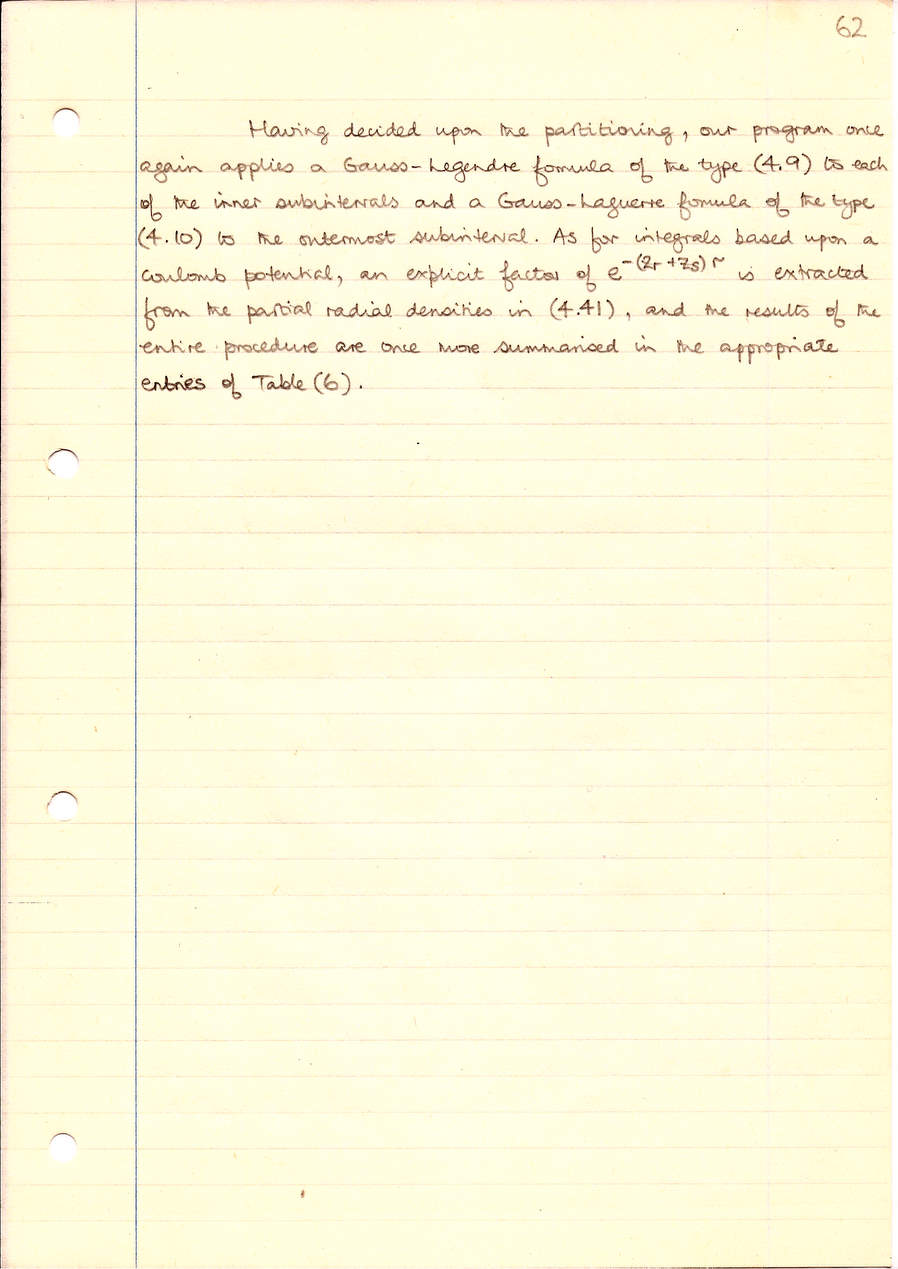 62
Having decided upon the partitioning, our program once
again applies a Gauss-Legendre formula of the type (4.9) to each
of the inner subintervals and a Gauss-Laguerre formula of the type
(4.10) to the outermost subinterval. As for integrals based upon a
Coulomb potential, an explicit factor of e^-(Zr + Zs) r is extracted
from the partial radial densities in (4.41), and the results of the
entire procedure are once more summarised in the appropriate
entries of Table (6).